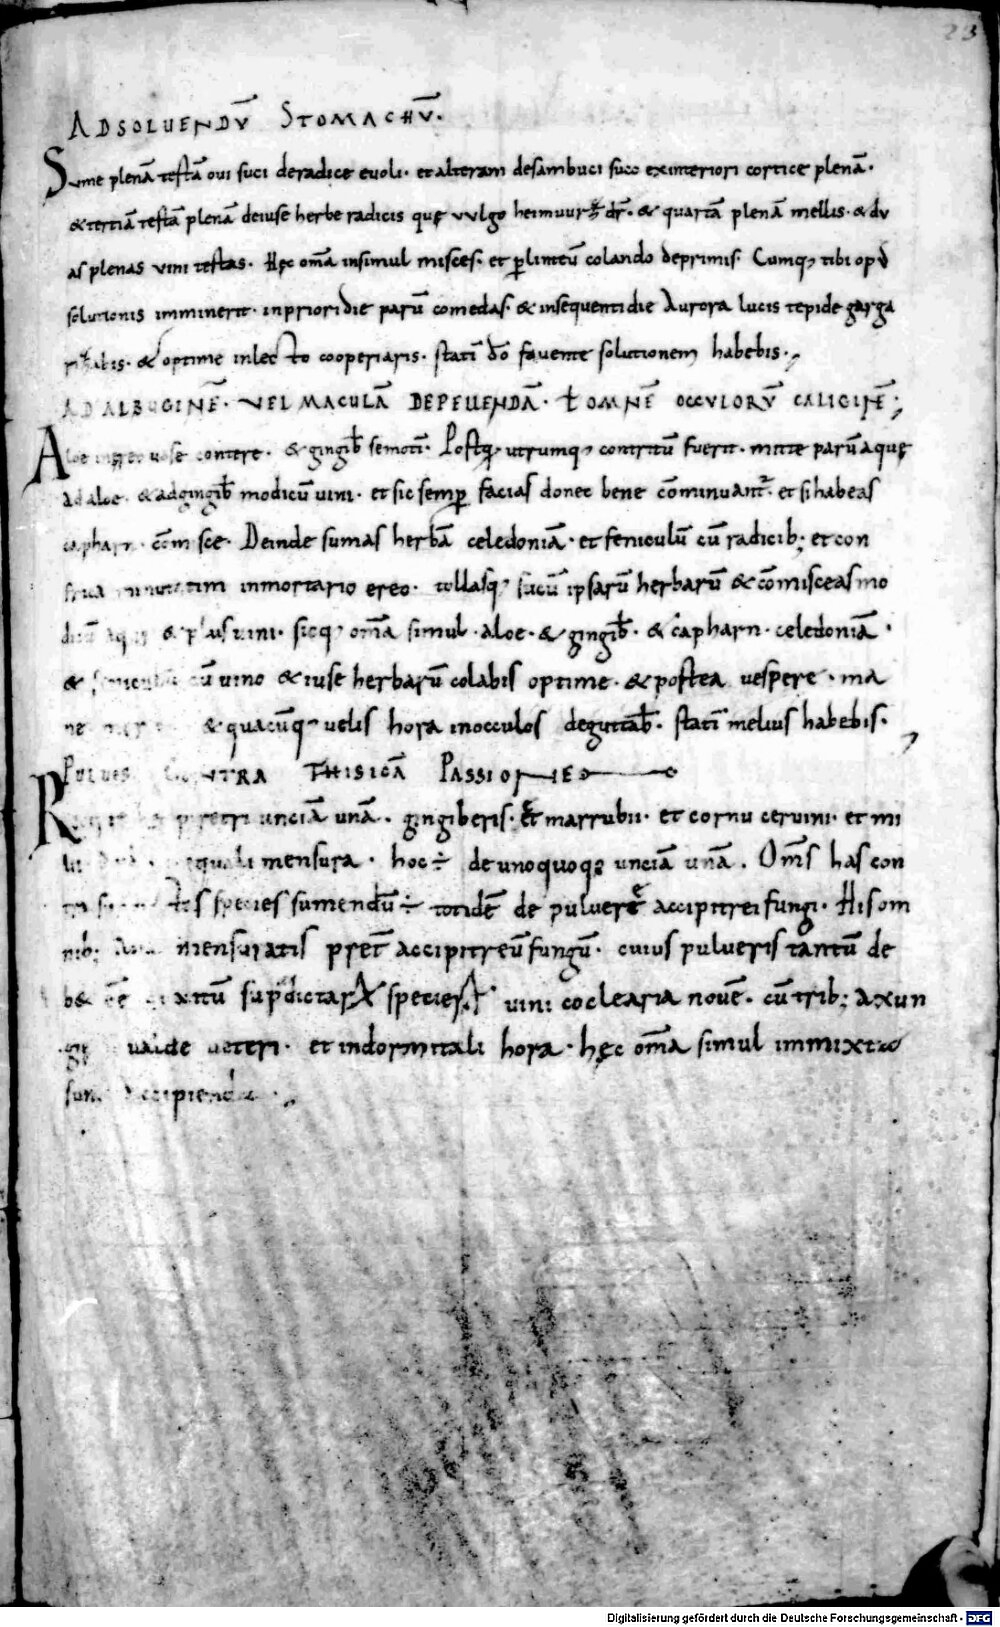 23
ADSOLUENDV̄ STOMACHV̄.
Sume plenā testā oui suci deradice euoli· et alteram desambuci suco exinteriori cortice plenā·
& tertiā testā plenā deiuse herbe radicis quę vvlgo dr̄· & quartā plenā mellis· & dv
as plenas vini testas· Hęc om̄a insimul misces· et ꝑlinteū colando deprimis· Cumq; tibi
solutionis imminerit· inprioridie parū comedas· & insequentidie Aurora lucis tepide garga
& optime inlecto cooperiaris· statī dō fauente solutionem habebis·,
ADALBUGINĒ· VEL MACULĀ DEPELLENDĀ· ł OMNĒ OCCVLORV̄ CALIGINĒ;
Aloe contere· & gingib̄ semotī· Postq̄ utrumq; contritū fuerit· mitte parū aquę
ad aloe· & adgingib̄ modicū uini· et sic semꝑ facias donec bene cōminuant̄· et si habeas
cōmisce· Deinde sumas herbā celedoniā· et feniculū cū radicib; et con
frica minutatim inmortario ereo· tollasq; sucū ipsarū herbarū & cōmisceas mo
& plus uini· sicq; om̄a simul· aloe· & gingib̄· & capharn· celedoniā·
& cū uino & iuse herbarū colabis optime· & postea uespere· ma
ne & quacūq; uelis hora inocculos deguttab̄· statī melius habebis·
PULUES CONTRA THISICĀ PASSIONĒ
piretri unciā unā· gingiberis· et marrubii· et cornu ceruini· et mi
equali mensura· hoc ÷ de unoquoq; unciā unā. Om̄s has con
species sumendū ÷ totidē de puluere accipitrei fungi· His om
nib; mensuratis pret̄ accipitreū fungū· cuius pulueris tantū de
b& ēē mixtū sup̄dictarꝝ specierꝝ vini coclearia nouē· cū trib; axun
gię ualde ueteri· et indormitali hora· hęc om̄a simul immixta
sunt accipienda·,
Digitalisierung gefördert durch die Deutsche Forschungsgemeinschaft · DFG